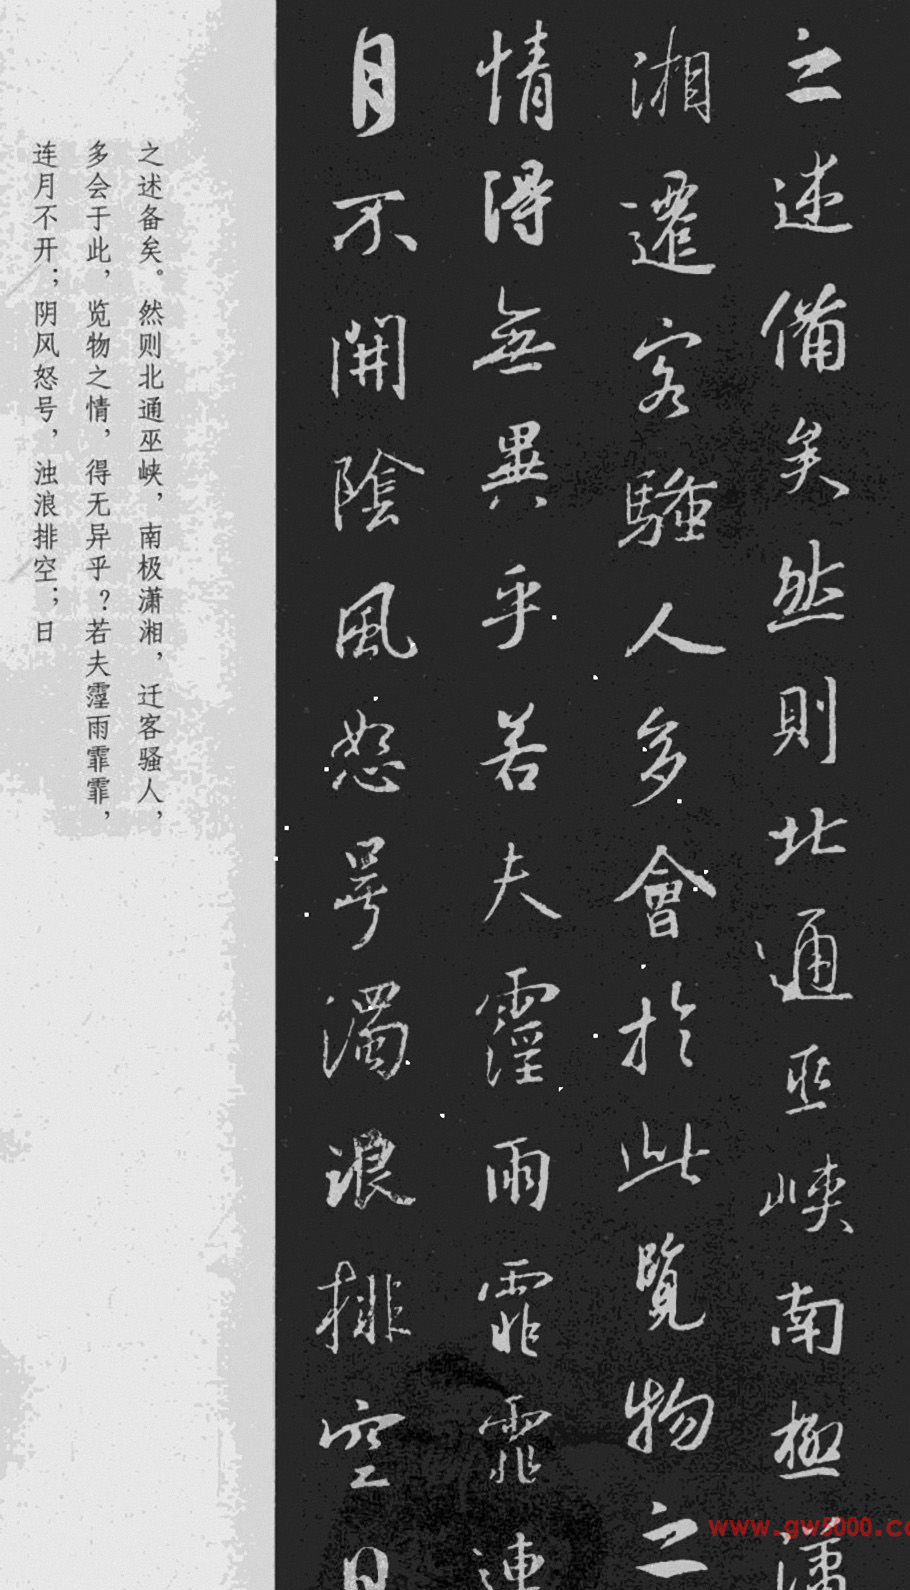 之述備矣然則北通巫峽南極瀟
湘遷客騷人多會於此覽物之
情得無異乎若夫霪雨霏霏連
月不開陰風怒号濁浪排空日
之述备矣。然则北通巫峡，南极潇湘，迁客骚人，
多会于此，览物之情，得无异乎？若夫霪雨霏霏，
连月不开；阴风怒号，浊浪排空；日